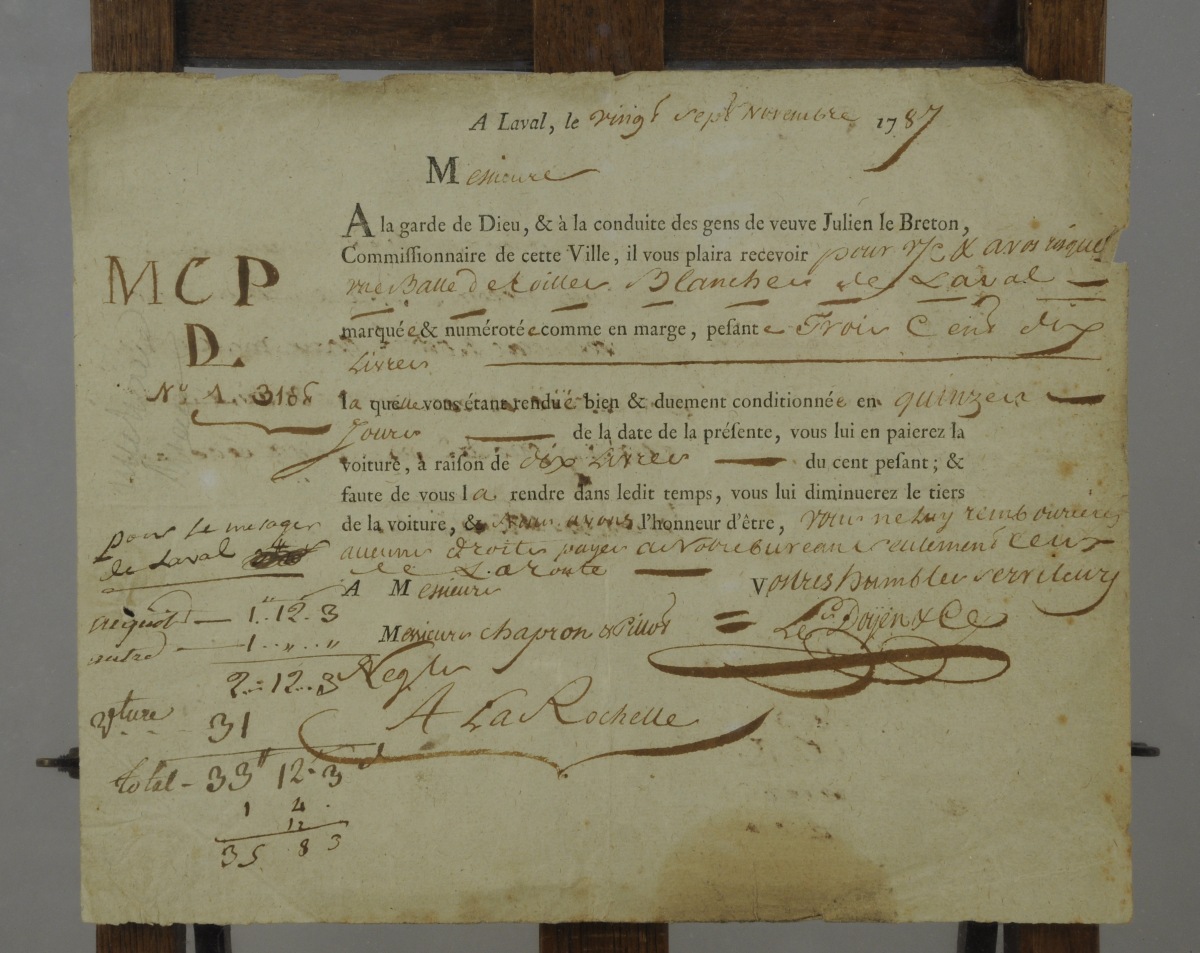 A Laval, le vingt sept Novembre 1787
Messieurs
A la garde de Dieu, & à la conduite des gens de veuve Julien le Breton,
Commissionnaire de cette Ville, il vous plaira recevoir pour v/c & a vos risques
une Balle de toilles Blanches de Laval
marquée & numérotée comme en marge, pesante Trois Cent dix
Livres
la quelle vous étant rendüe bien & duement conditionnée en quinze
Jours de la date de la présente, vous lui en paierez la
voiture, à raison de dix Livres du cent pesant; &
faute de vous la rendre dans ledit temps, vous lui diminuerez le tiers
de la voiture, & nous avons l'honneur d'être, vous ne luy rembourserez
aucuns droits payés a Notre bureau seulement ceux
de La route
A Messieurs Vostres humbles serviteurs
Messieurs chapron & Le Doyen & Ce
Negts
A La Rochelle
MCP
D.
No 1. 310
pour le mesager
de Laval
acquit 1..12.3
autre 1..,,..,,
2..12..3
Vture 31
total - 33 12.3
1 4
12
35 8 3